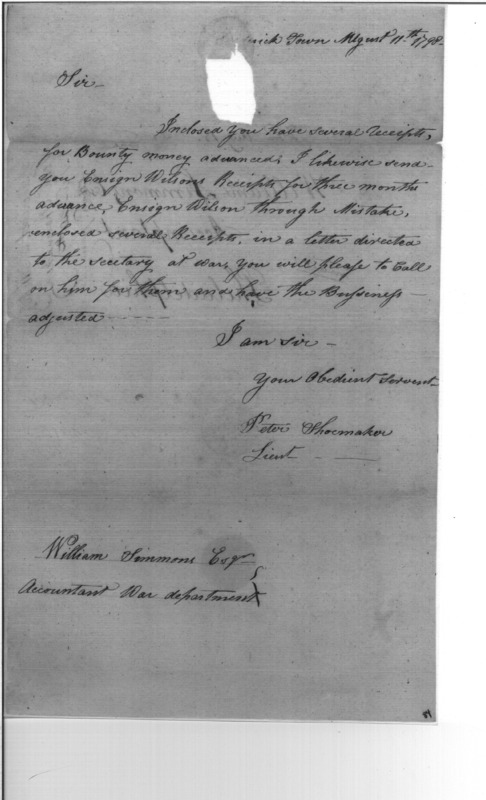 rick Town August 11th 1798
Sir
Inclosed you have several receipts,
for Bounty money advanced; I likewise send
you Ensign Wilsons Receipts for three months
advance, Ensign Wilson through Mistake,
enclosed several Receipts, in a letter directed
to the secetary at war, you will please to Call
on him for them and have the Bussiness
adjusted
I am sir
your Obedient Servent
Peter Shoemaker
Lieut
William Simmons Esqr
Accountant War department